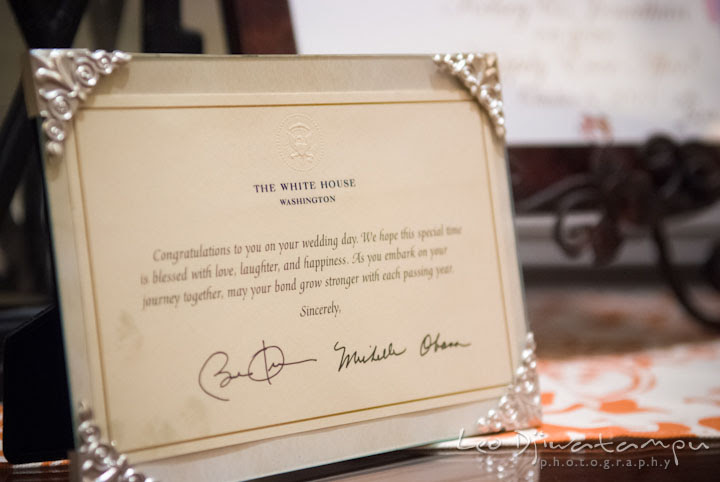 THE WHITE HOUSE
WASHINGTON
Congratulations to you on your wedding day. We hope this special time
is blessed with love, laughter, and happiness. As you embark on your
journey together, may your bond grow stronger with each passing year.
Sincerely,
Michelle Obama
Leo Dj Wiratampu
photography